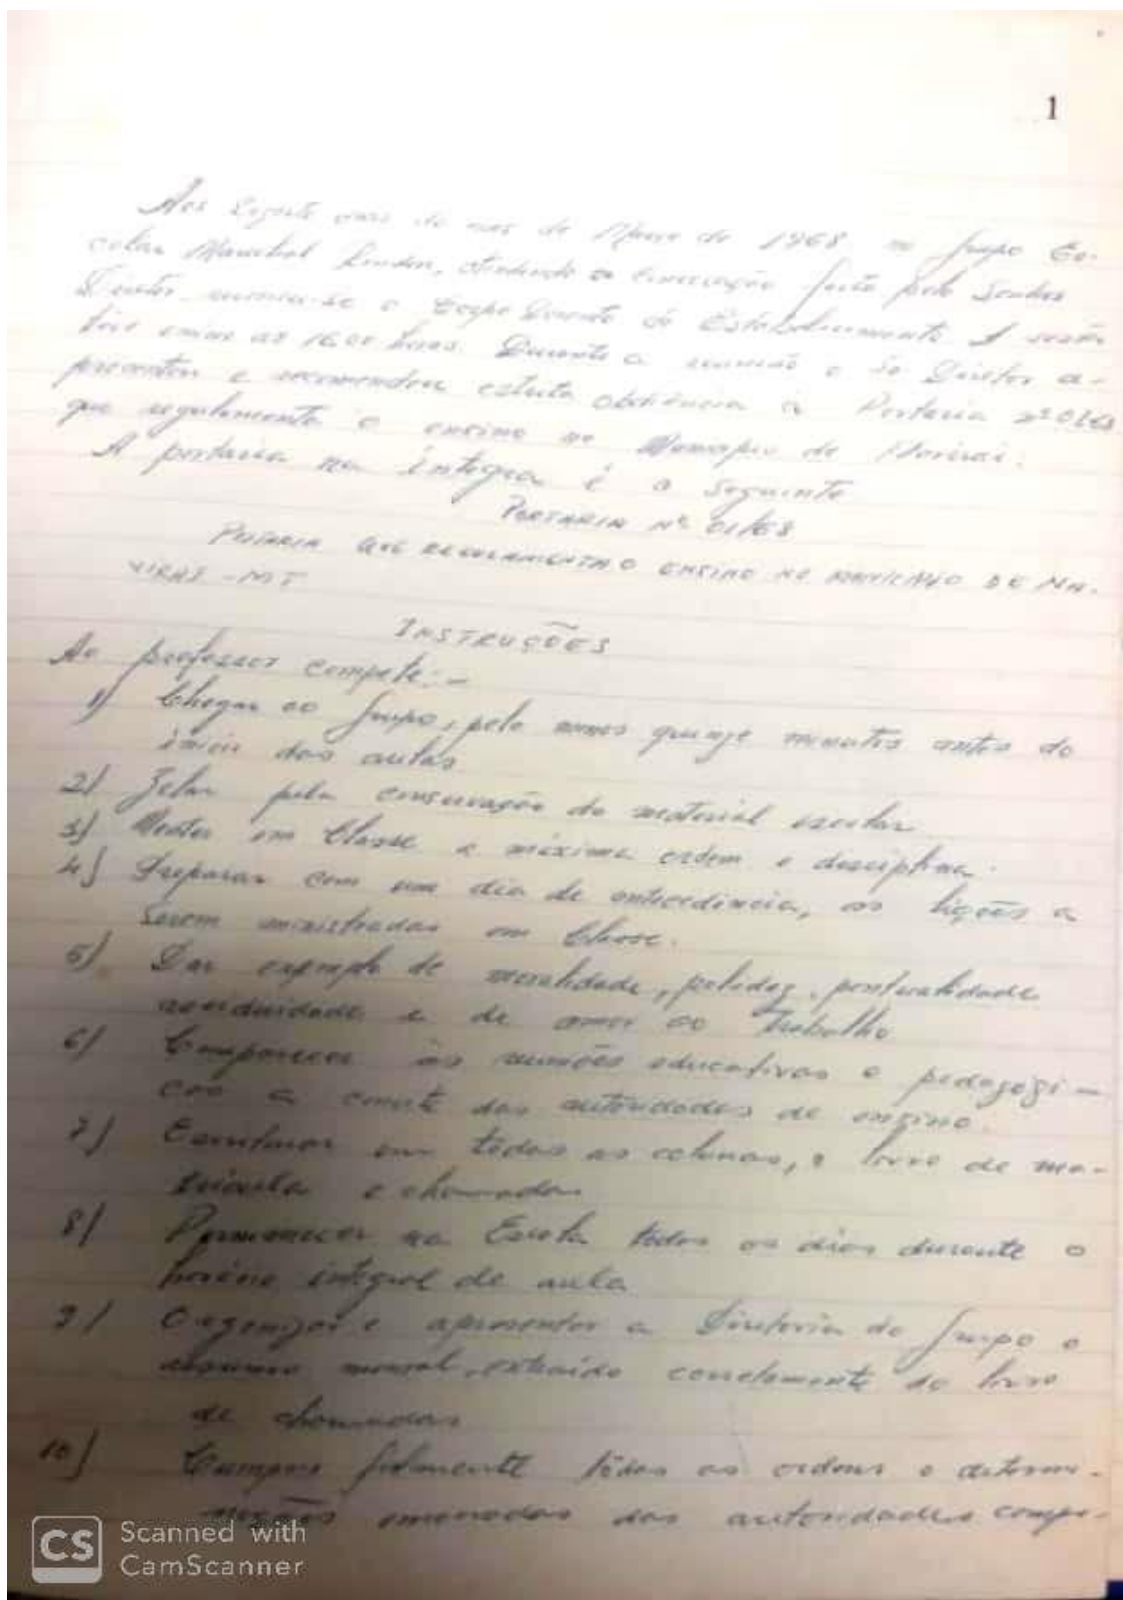 1
Aos do mes de Março de 1968 no Grupo Es-
colar Marechal Rondon, atendendo a convocação feita pelo Senhor
Diretor reuniu-se o Corpo Docente do Estabelecimento A sessão
teve as 16,00 horas. Durante a reunião o Sr Diretor a-
presentou e recomendou estrita obediência à Portaria nº 01/68
que regulamenta o ensino no Município de Navirai.
A portaria na íntegra é a seguinte
PORTARIA Nº 01/68
PORTARIA QUE REGULAMENTA O ENSINO NO MUNICÍPIO DE NA-
VIRAI - MT
INSTRUÇÕES
Ao professor compete:-
1) Chegar ao Grupo, pelo menos quinze minutos antes do
início das aulas
2) Zelar pela conservação do material escolar
3) Manter em Classe a máxima ordem e disciplina.
4) Preparar com um dia de antecedência, as lições a
serem ministradas em Classe.
5) Dar exemplo de moralidade, polidez, pontualidade
assiduidade e de amor ao trabalho
6) Comparecer às reuniões educativas e pedagógi-
cas a convite das autoridades de ensino.
7) Escriturar em tôdas as colunas, o livro de ma-
tricula e chamadas
8) Permanecer na Escola todos os dias durante o
horário integral de aula
9) Organizar e apresentar a Diretoria do Grupo o
resumo mensal, extraído corretamente do livro
de chamadas
10) Cumprir fielmente tôdas as ordens e determi-
nações emanadas das autoridades compe-
CS Scanned with
CamScanner